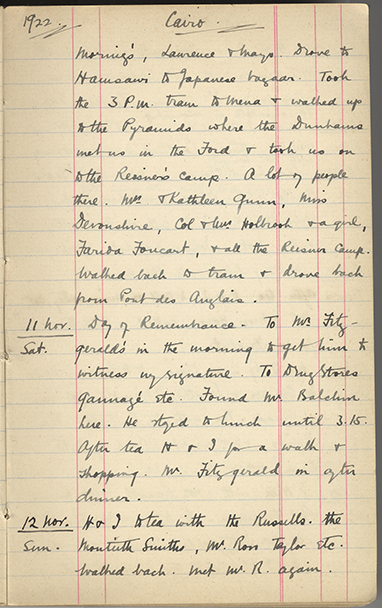 1922. Cairo.
Morning's, Lawrence & Mays. Drove to
Hamsawi to Japanese bazaar. Took
the 3 P.m. tram to Mena & walked up
to the Pyramids where the Dunhams
met us in the Ford & took us on
to the Reisner's camp. A lot of people
there. Mrs & Kathleen Gunn, Miss
Devonshire, Col & Mrs Holbrook & a girl,
Farida Foucart, & all the Reisner Camp.
Walked back to tram & drove back
from Pont des Anglais.
11 Nov. Day of Remembrance. To Mr Fitz-
Sat. gerald's in the morning to get him to
witness my signature. To Drug Stores
Gannagé etc. Found Mr Balchin
here. He styed to lunch until 3.15.
After tea H & I for a walk &
shopping. Mr Fitzgerald in after
dinner.
12 Nov. H & I to tea with the Russells. the
Sun. Monteith Smiths, Mr Ross Taylor etc.
Walked back. Met Mr R. again.